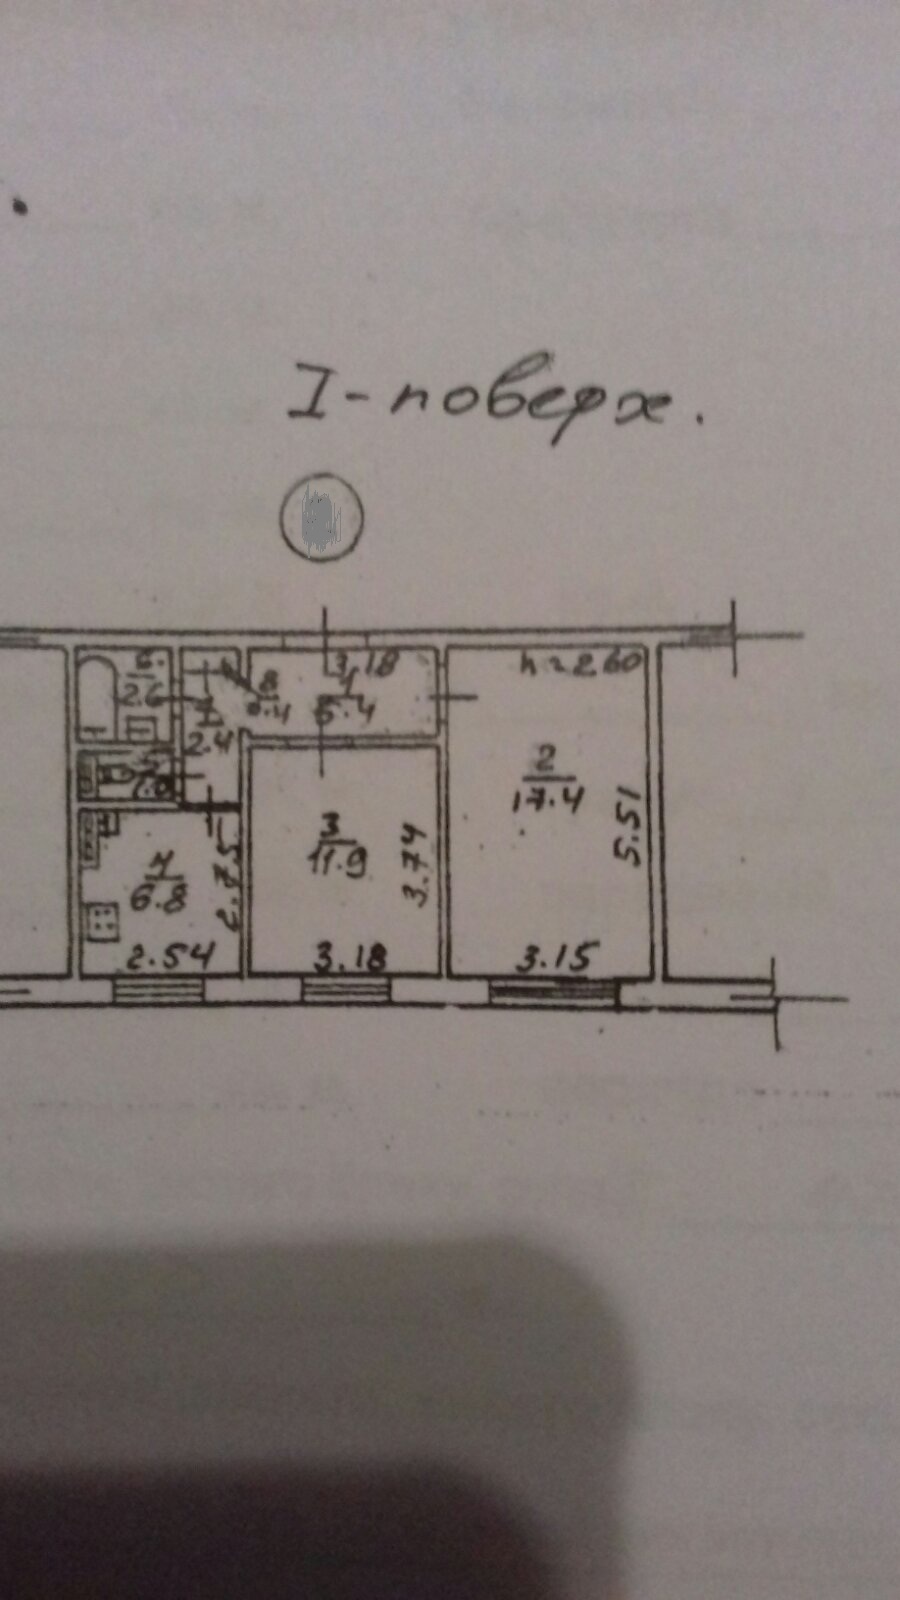 I-поверх.
6.
2.6
8
0.4
3.18
1
5.4
h=2.60
7
2.4
5
2
17.4
5.51
3
11.9
3.74
4
6.8
2.75
2.54
3.18
3.15